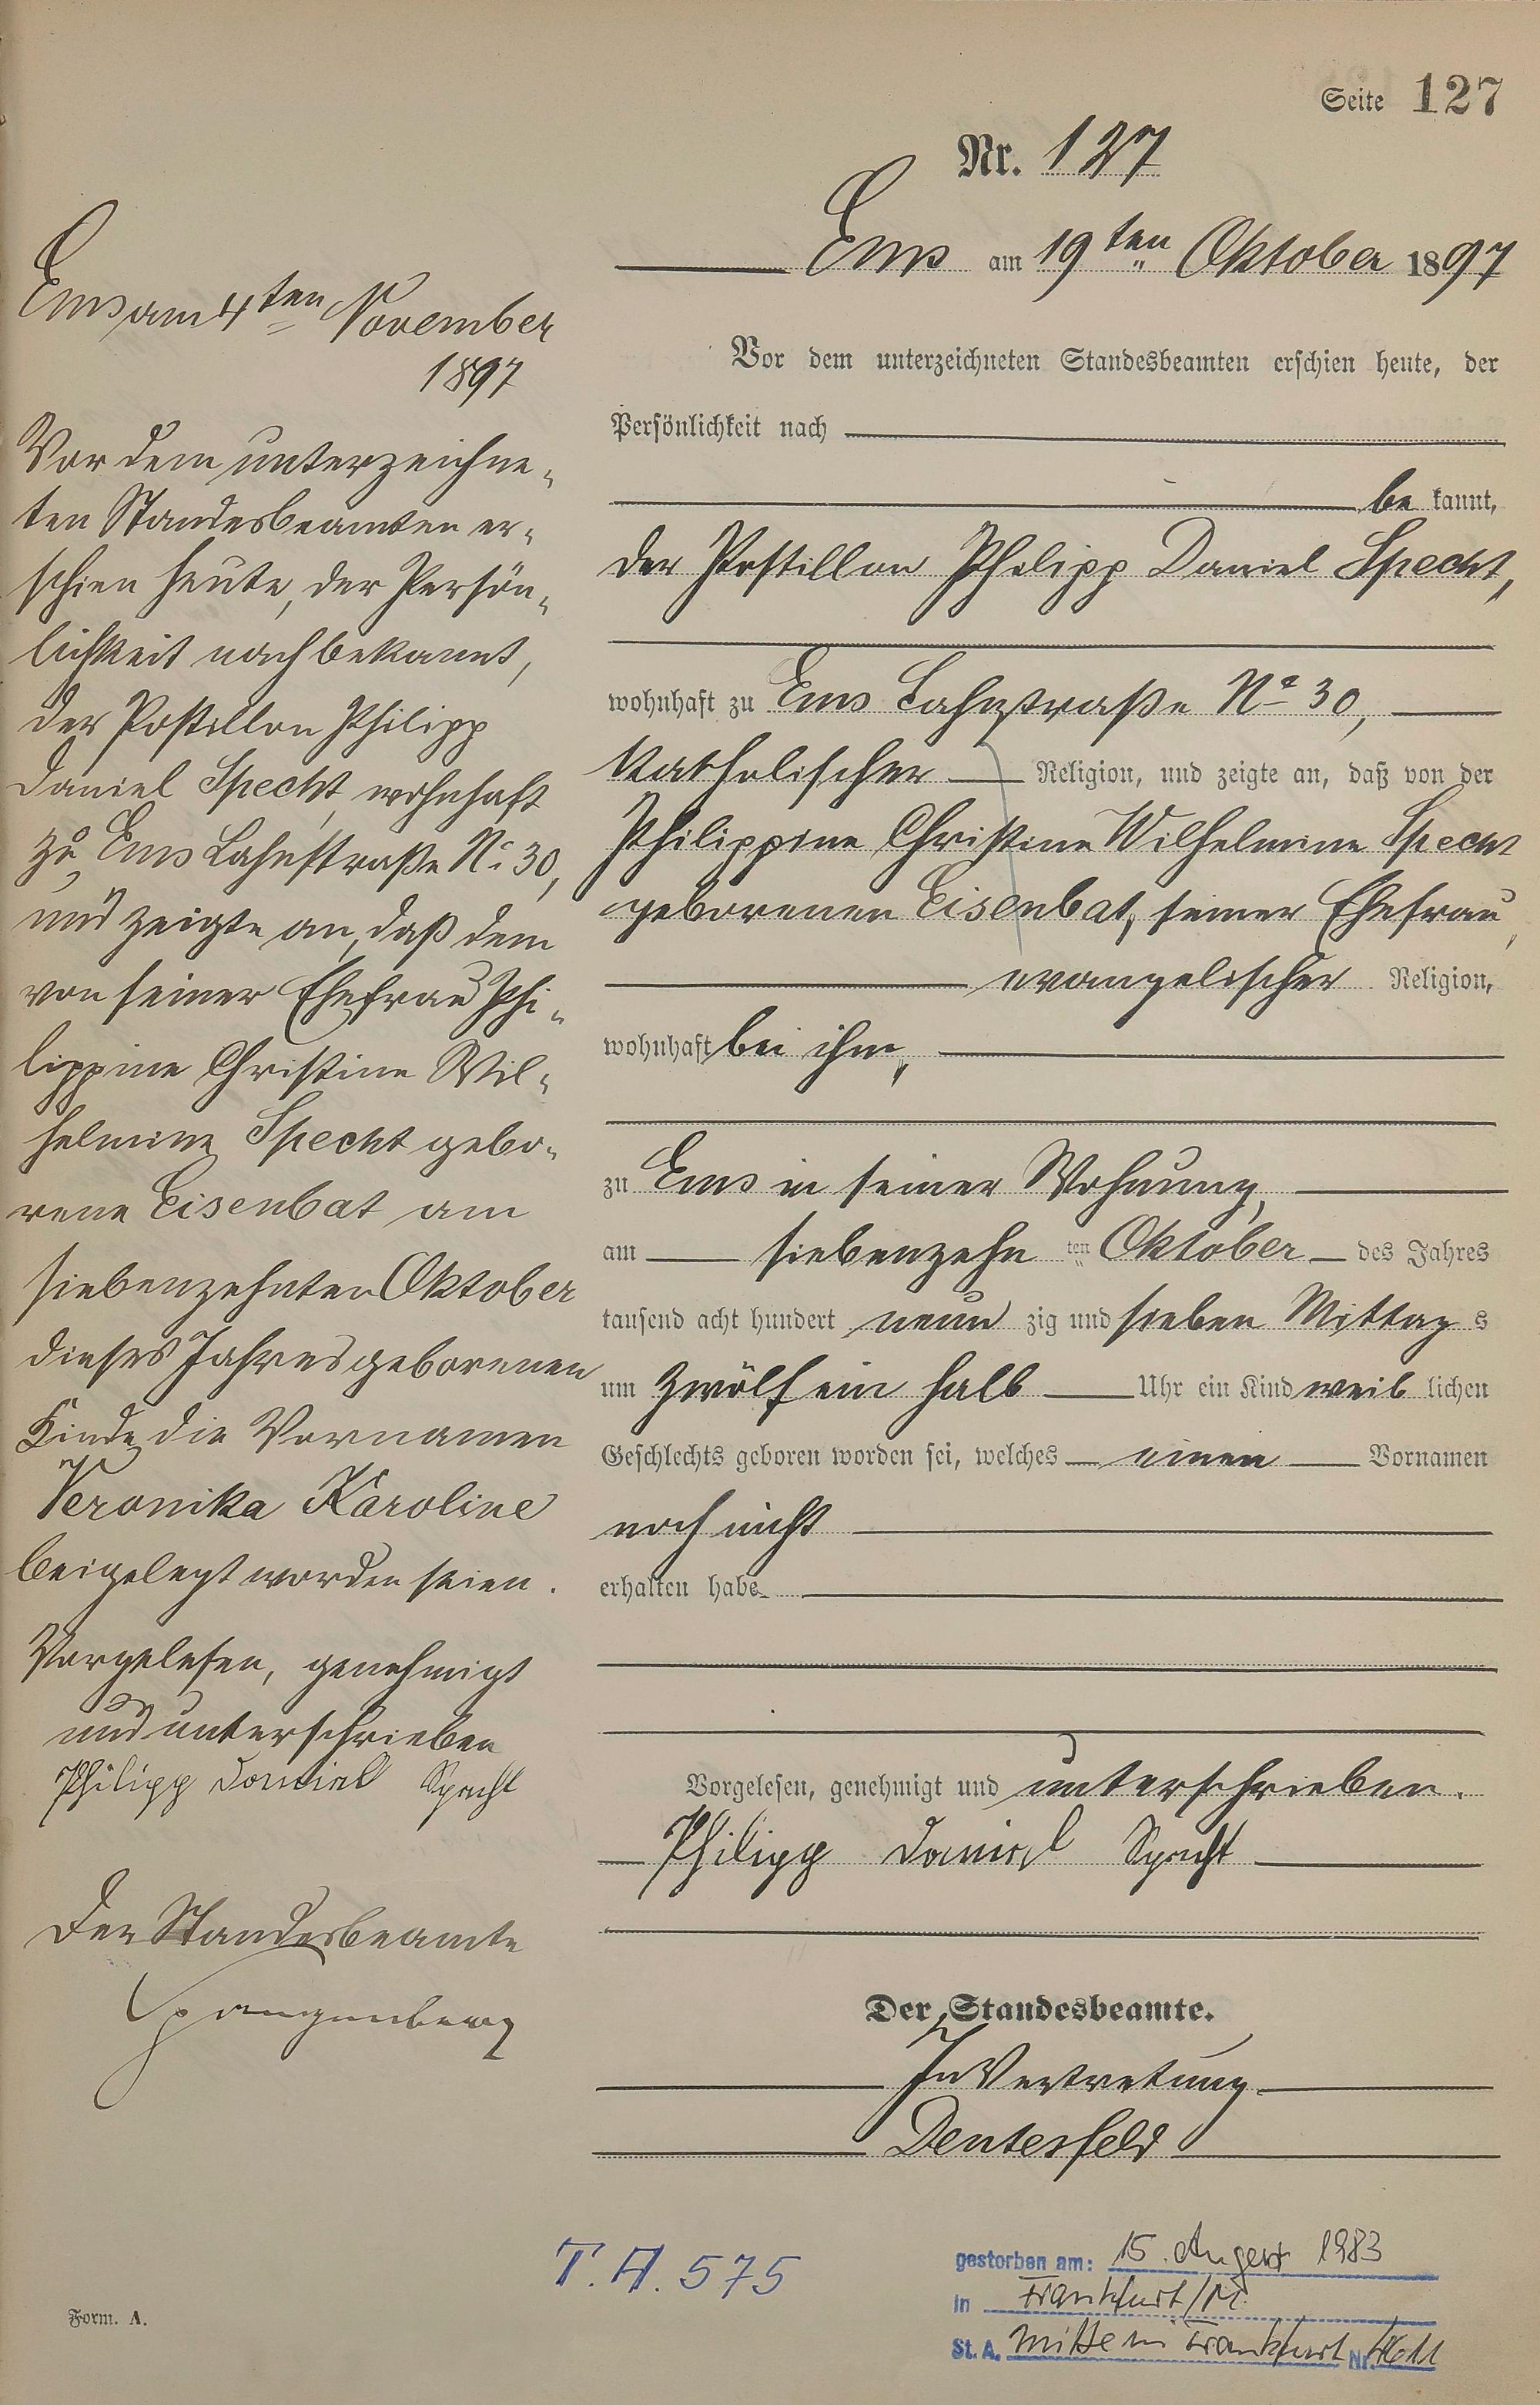 Seite 127
Nr. 127
Ems am 19ten Oktober 1897
Vor dem unterzeichneten Standesbeamten erschien heute, der
Persönlichkeit nach
be kannt,
der Postillon Philipp Daniel Specht,
wohnhaft zu Ems Lahnstraße No 30,
katholischer Religion, und zeigte an, daß von der
Philippine Christine Wilhelmine Specht
geborenen Eisenbat, seiner Ehefrau,
evangelischer Religion,
wohnhaft bei ihm,
zu Ems in seiner Wohnung,
am siebenzehn ten Oktober des Jahres
tausend acht hundert neun zig und sieben Mittag s
um zwölf ein halb Uhr ein Kind weib lichen
Geschlechts geboren worden sei, welches einen Vornamen
noch nicht
erhalten habe
Vorgelesen, genehmigt und unterschrieben.
Philipp Daniel Specht
Der Standesbeamte.
In Vertretung
Ems am 4ten November
1897
Vor dem unterzeichne-
ten Standesbeamten er-
schien heute, der Persön-
lichkeit nach bekannt,
der Postillon Philipp
Daniel Specht, wohnhaft
zu Ems Lahnstraße No 30,
und zeigte an, daß dem
von seiner Ehefrau Phi-
lippine Christine Wil-
helmine Specht gebo-
rene Eisenbat am
siebenzehnten Oktober
dieses Jahres geborenen
Kinde die Vornamen
Veronika Karoline
beigelegt worden seien.
Vorgelesen, genehmigt
und unterschrieben
Philipp Daniel Specht
Der Standesbeamte
Spangenberg
T. A. 575
gestorben am: 15. August 1983
in Frankfurt/M.
St. A. Mitte in Frankfurt Nr.
Form. A.